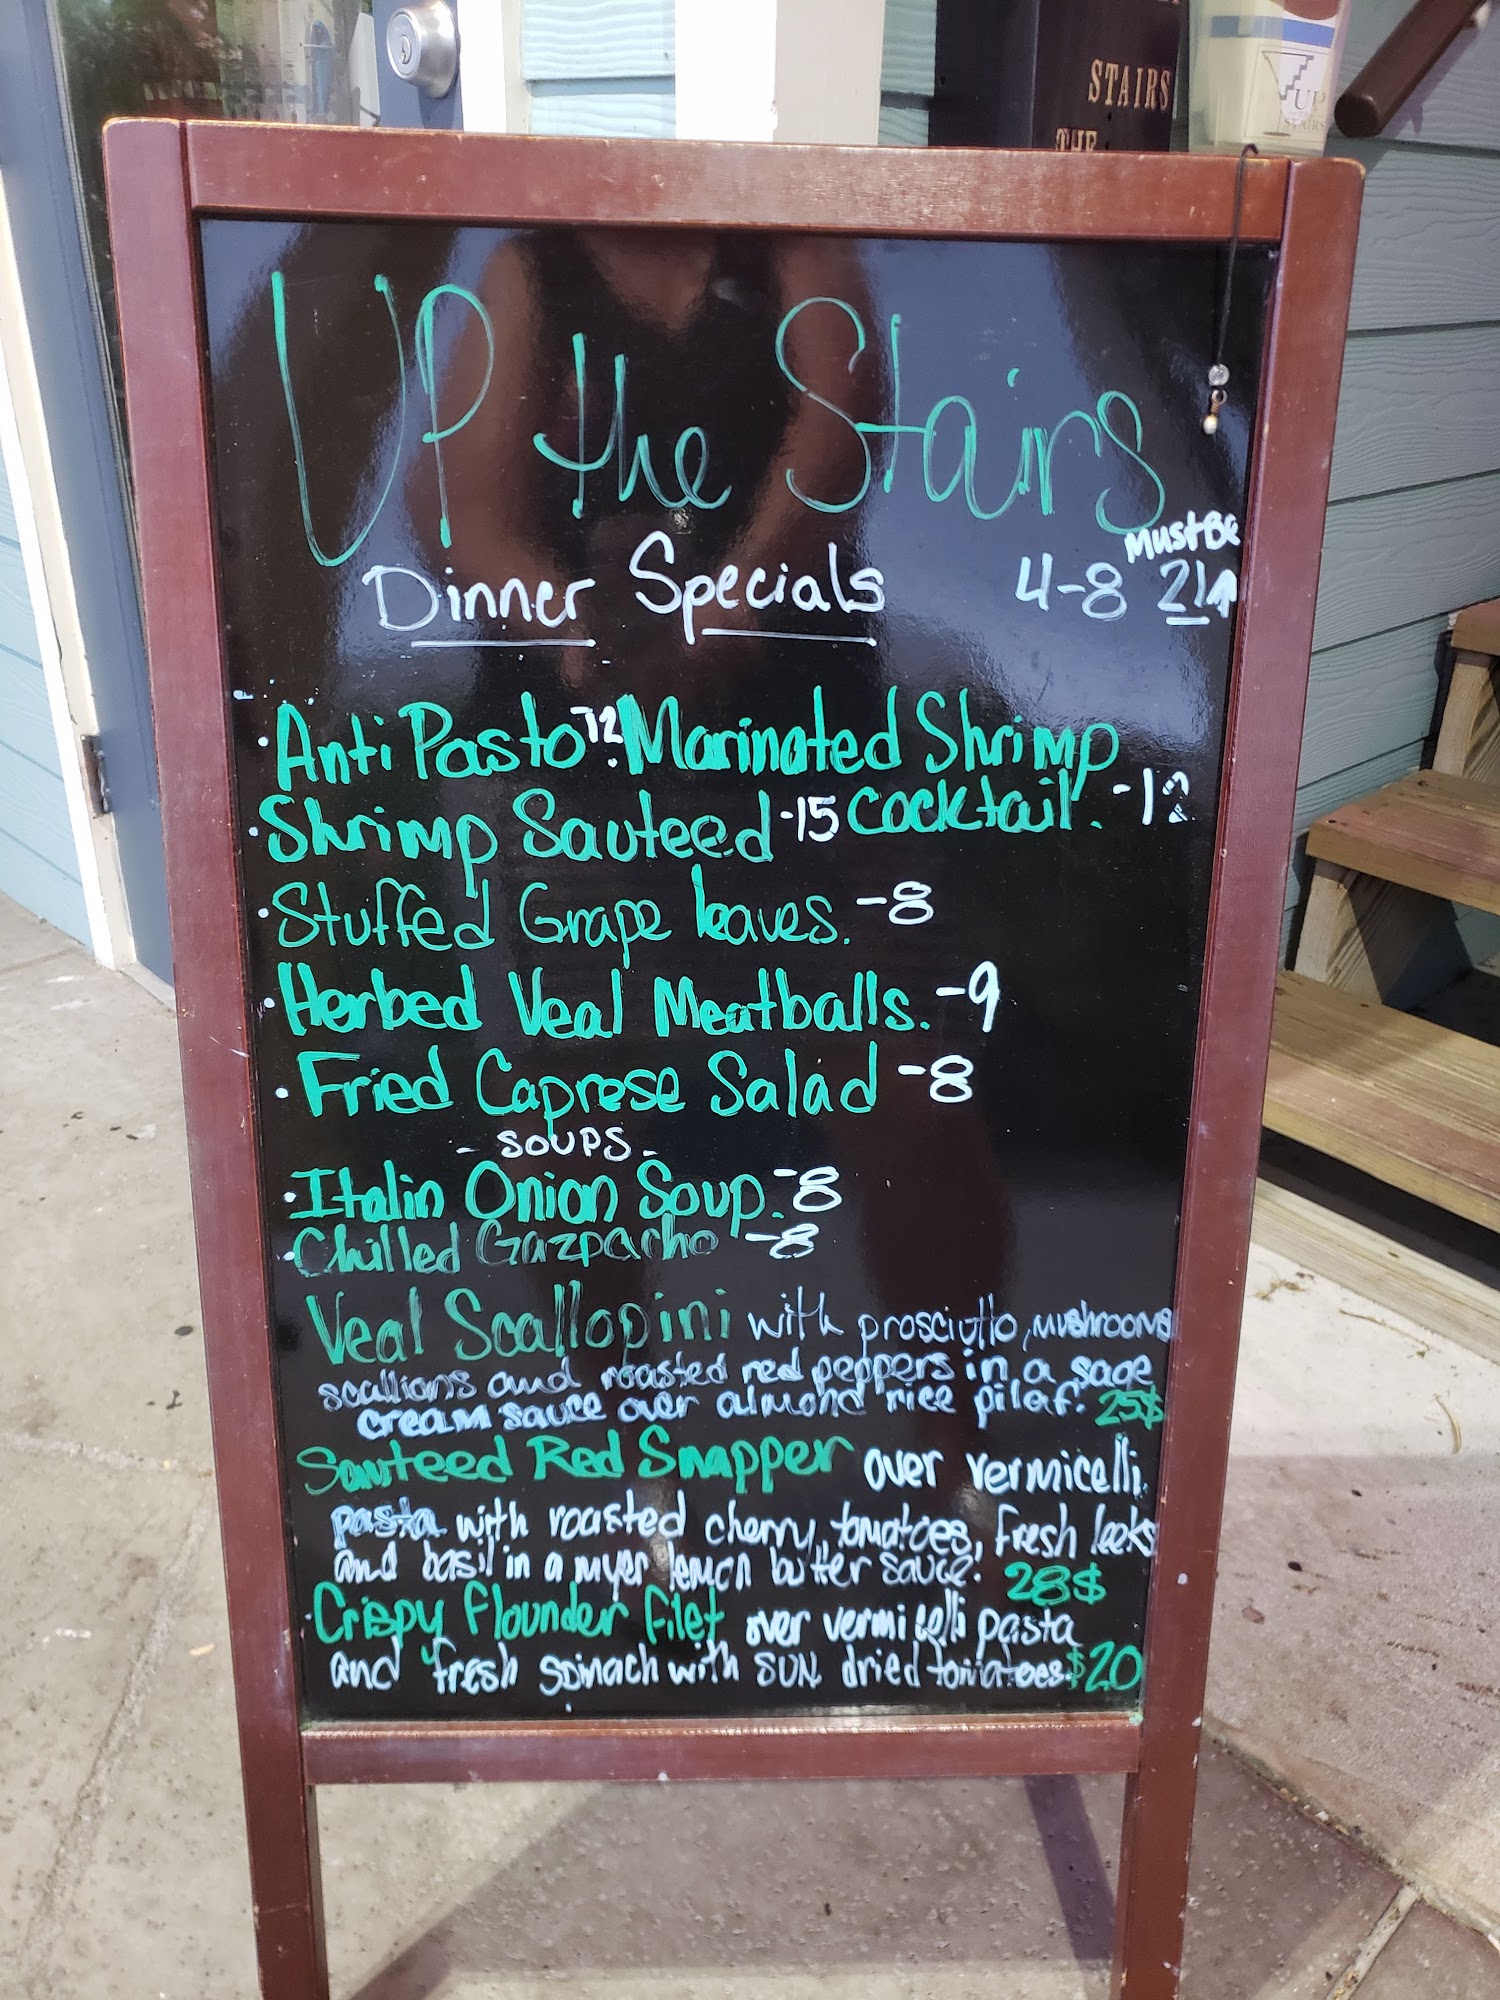 STAIRS
THE
UP
STAIRS
UP the Stairs
Dinner Specials 4-8 Must Be 21↑
· Anti Pasto -12 · Marinated Shrimp
· Shrimp Sauteed -15 cocktail. -12
· Stuffed Grape leaves. -8
· Herbed Veal Meatballs. -9
· Fried Caprese Salad -8
- SOUPS -
· Italin Onion Soup. -8
· Chilled Gazpacho -8
Veal Scallopini with prosciutto, mushrooms
scallions and roasted red peppers in a sage
cream sauce over almond rice pilaf. 25$
Sauteed Red Snapper over vermicelli
pasta with roasted cherry tomatoes, fresh leeks
and basil in a myer lemon butter sauce. 28$
· Crispy flounder filet over vermicelli pasta
and fresh spinach with SUN dried tomatoes. $20